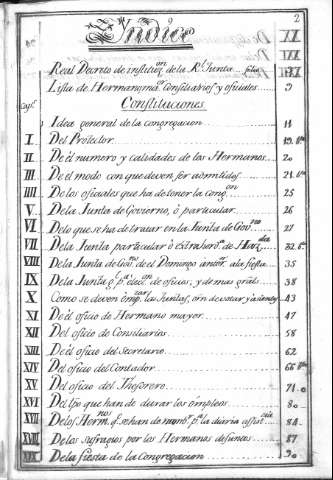 2
Índice
Real Decreto de instituz.on de la R.l Junta
Lista de Herman.os mai.or Consiliarios y oficiales 9
Cap.s Constituciones
Idea general de la congregacion 11
I Del Protector
II De él numero y calidades de los Hermanos 20
III De el modo con que deven ser admitidos 21
IIII De los oficiales que ha de tener la cong.on 25
V De la Junta de Govierno, ò particular 26
VI De lo que se ha de tratar en la Junta de Gov.no 27
VII De la Junta particular ò extrahor.a de 32
VIII De la Junta de Gov.no de el Domingo antes.or à la fiesta 35
IX De la Junta g.l p.a elecc.on de oficios, y demas gral 38
X Como se deven empezar las Juntas, orn de votar y asientos 43
XI De el oficio de Hermano mayor 47
XII Del oficio de Consiliarios 58
XIII De el oficio del Secretario 62
XIV Del oficio del Contador 66
XV Del oficio del Thesorero 71
XVI Del tpo que han de durar los émpleos 80
XVII De los Herm.nos q.e se han de nombr.r p.a la diaria asist.cia 84
XVIII De los sufragios por los Hermanos defuntos 87
XIX De la fiesta de la Congregacion 90